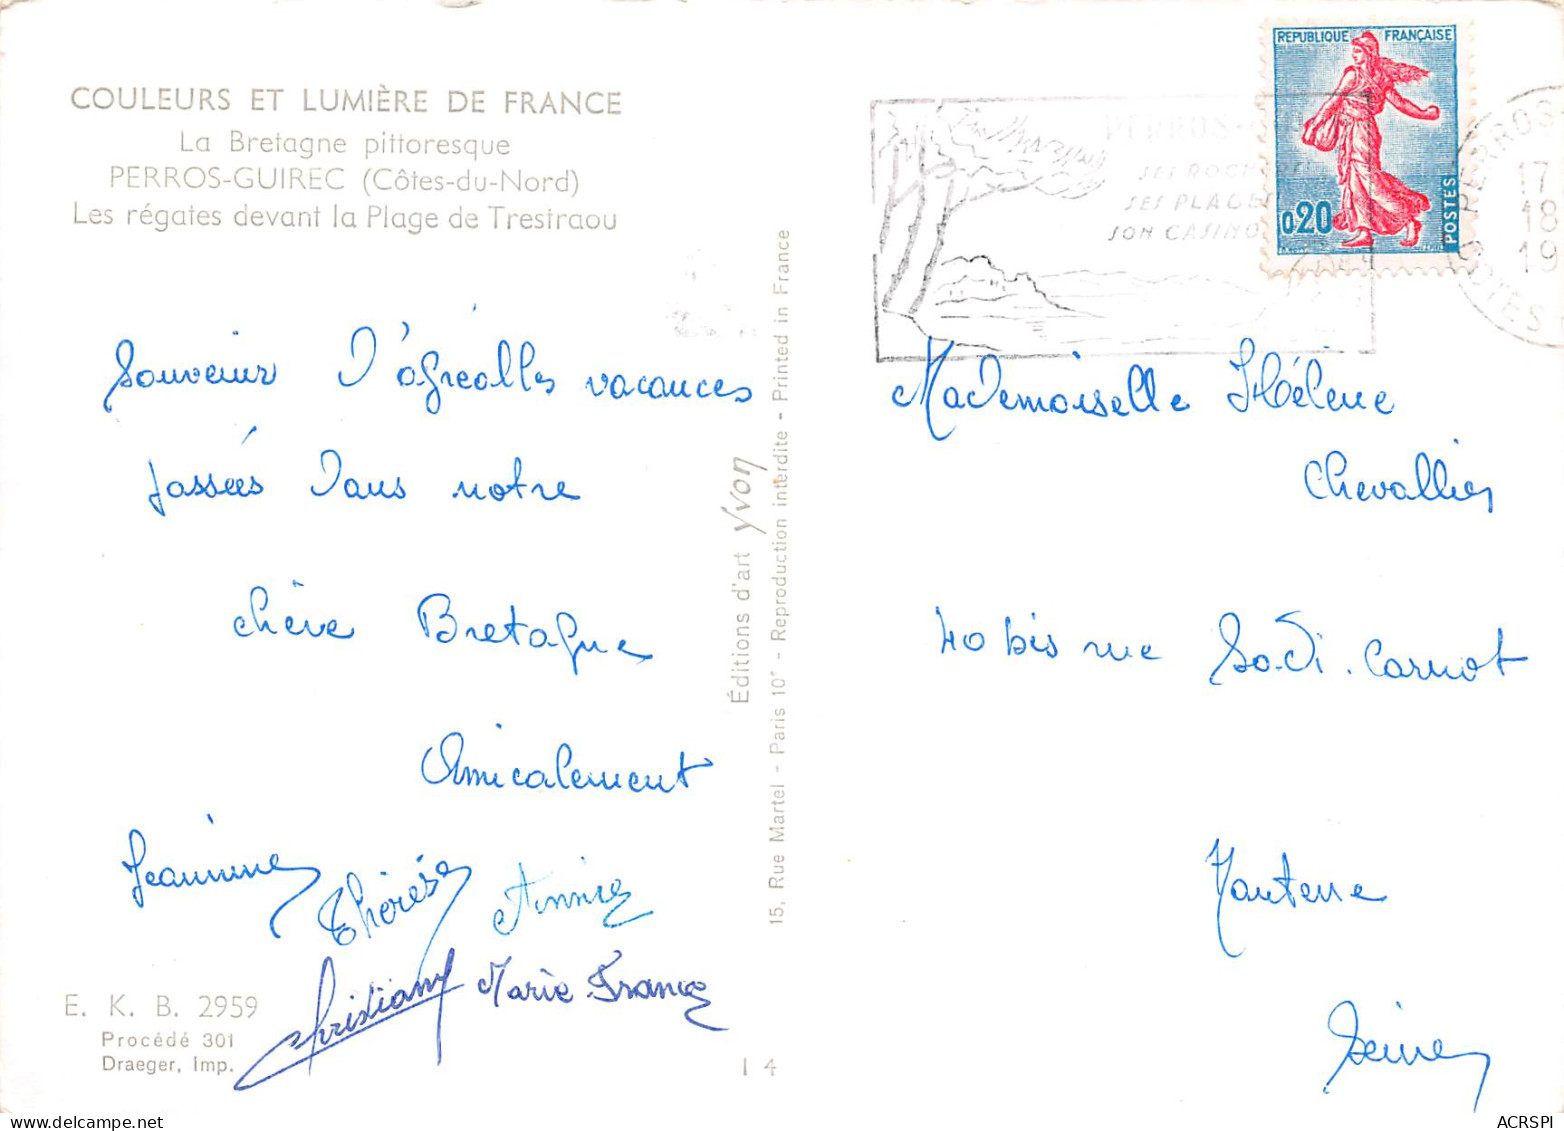 COULEURS ET LUMIÈRE DE FRANCE
La Bretagne pittoresque
PERROS-GUIREC (Côtes-du-Nord)
Les régates devant la Plage de Trestraou
Souvenir d'agréables vacances
passées dans notre
chère Bretagne
Amicalement
Jeannine
Thérèse
Annie
Christiane
Marie France
E. K. B. 2959
Procédé 301
Draeger, Imp.
I 4
Éditions d'art yvon
15, Rue Martel - Paris 10e - Reproduction interdite - Printed in France
PERROS-G
SES ROCH
SES PLAGE
SON CASINO
REPUBLIQUE FRANÇAISE
0,20
POSTES
PERROS
17
18
19
Mademoiselle Hélène
Chevallier
40 bis rue Sadi. Carnot
Nanterre
Seine
ACRSPI